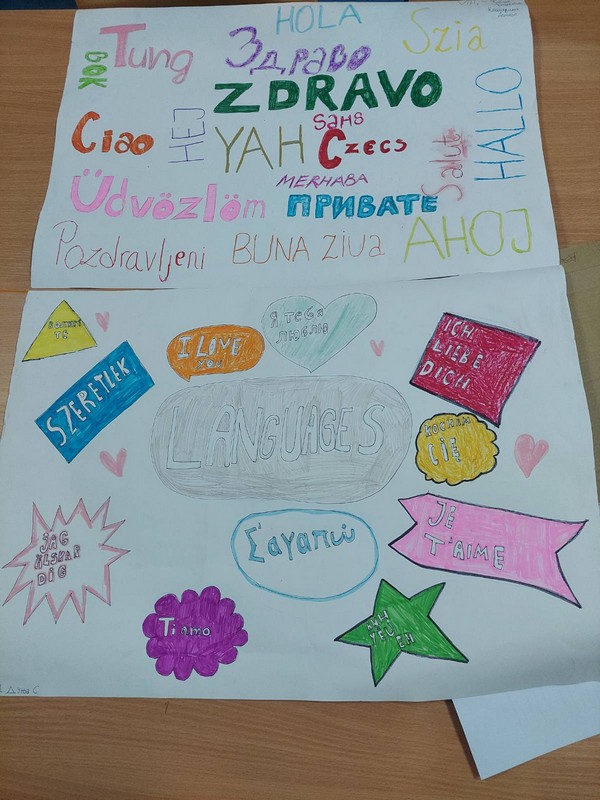 HOLA
Szia
Tung
Здраво
БОК
ZDRAVO
HALLO
Ciao
HEJ
YAH
Sans
Czecs
Salut
MERHABA
Üdvözlöm
ПРИВАТЕ
Pozdravljeni
BUNA ZIUA
AHOJ
I LOVE
YOU!
Я ТЕБЯ
ЛЮБЛЮ
ICH
LIEBE
DICH
SZERETLEK
LANGUAGES
KOCHAM
CIĘ
JAG
ÄLSKAR
DIG
Σ'αγαπώ
JE
T'AIME
Ti amo
ANH
YEU
EM